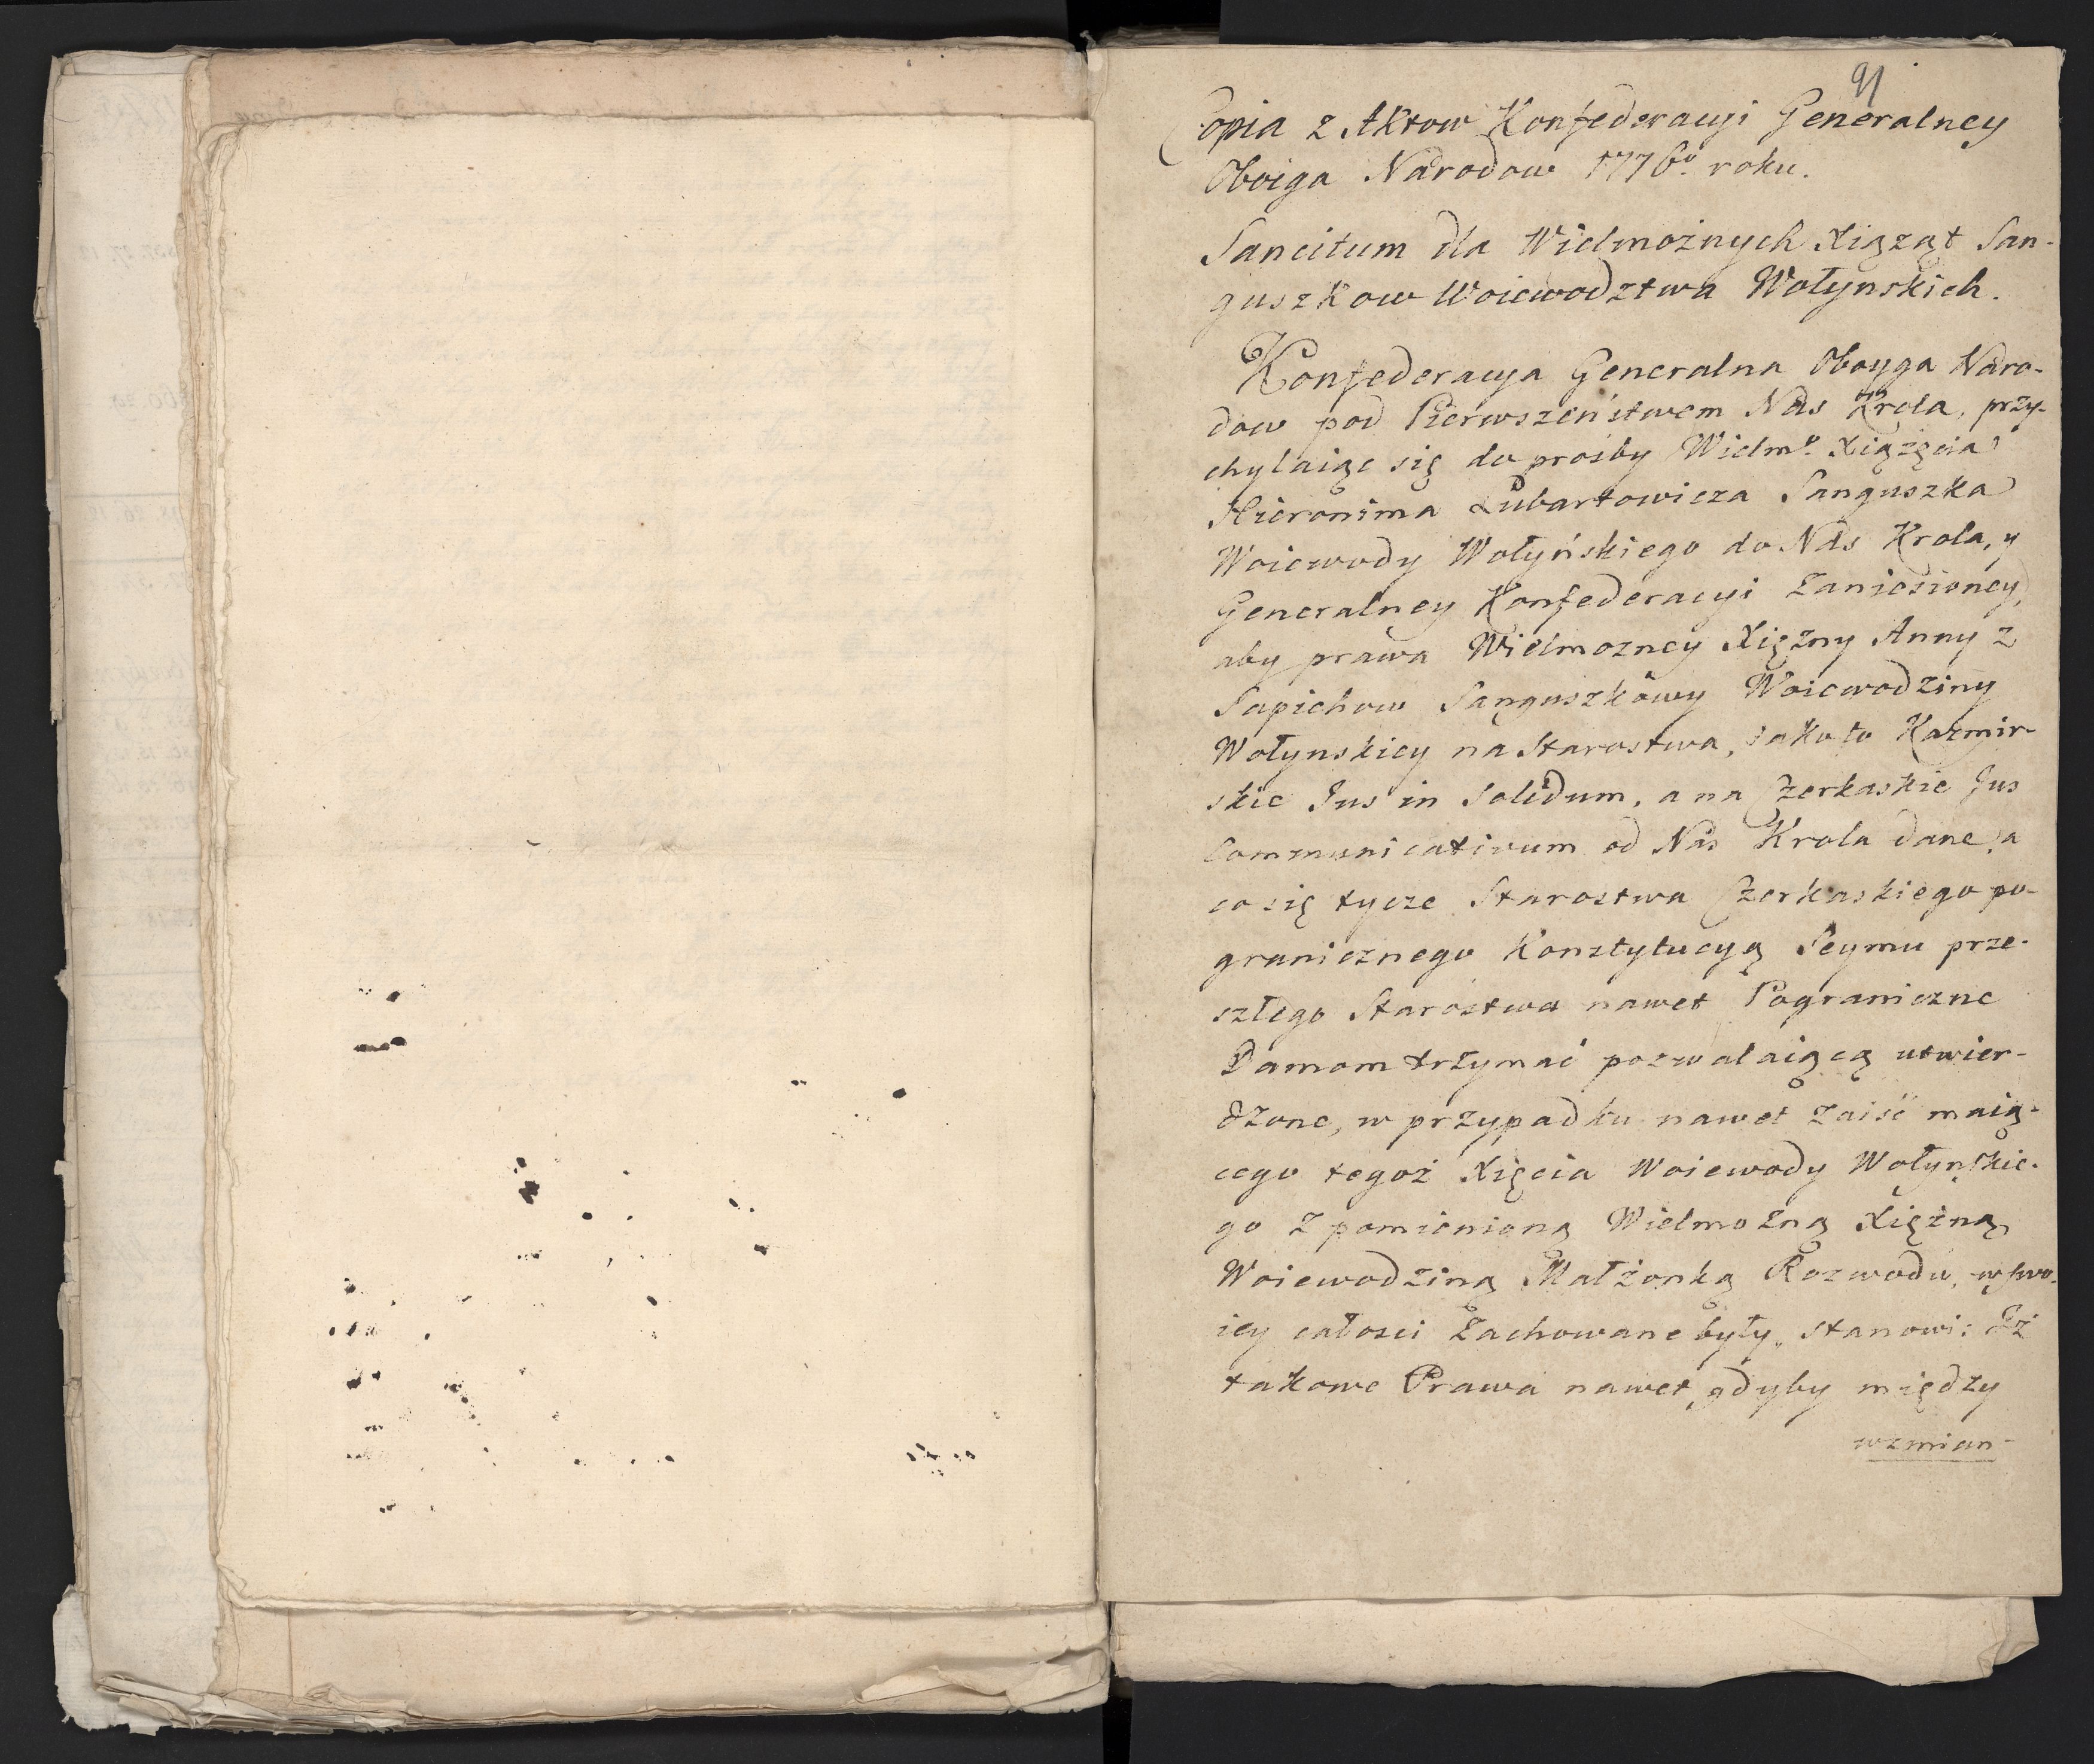 91
Copia z Aktow Konfederacyi Generalney
Oboiga Narodow 1776º. roku.
Sancitum dla Wielmożnych Xiążąt San-
guszkow Woiewodztwa Wołynskich.
Konfederacya Generalna Oboyga Naro-
dow pod Pierwszeństwem Nas Krola, przy-
chylaiąc się do proźby Wielmº. Xiążęcia
Hieronima Lubartowicza Sanguszka
Woiewody Wołyńskiego do Nas Krola, y
Generalney Konfederacyi zaniesioney,
aby prawa Wielmozney Xięzny Anny z
Sapiehow Sanguszkowy Woiewodziny
Wołynskiey na Starostwa, iako to Kazmir-
skie Jus in Solidum, a na Czerkaskie Jus
Communicativum od Nas Krola dane, a
co się tycze Starostwa Czerkaskiego po-
granicznego Konstytucyą Seymu prze-
szłego Starostwa nawet Pograniczne
Damom trzymać pozwalaiącą utwier-
dzone, w przypadku nawet zaiść maią-
cego tegoż Xięcia Woiewody Wołynskie-
go z pomienioną Wielmożną Xiężną
Woiewodziną Małżonką Rozwodu, w swo-
iey całosci zachowane były, stanowi: Iż
takowe Prawa nawet, gdyby między
wzmian-